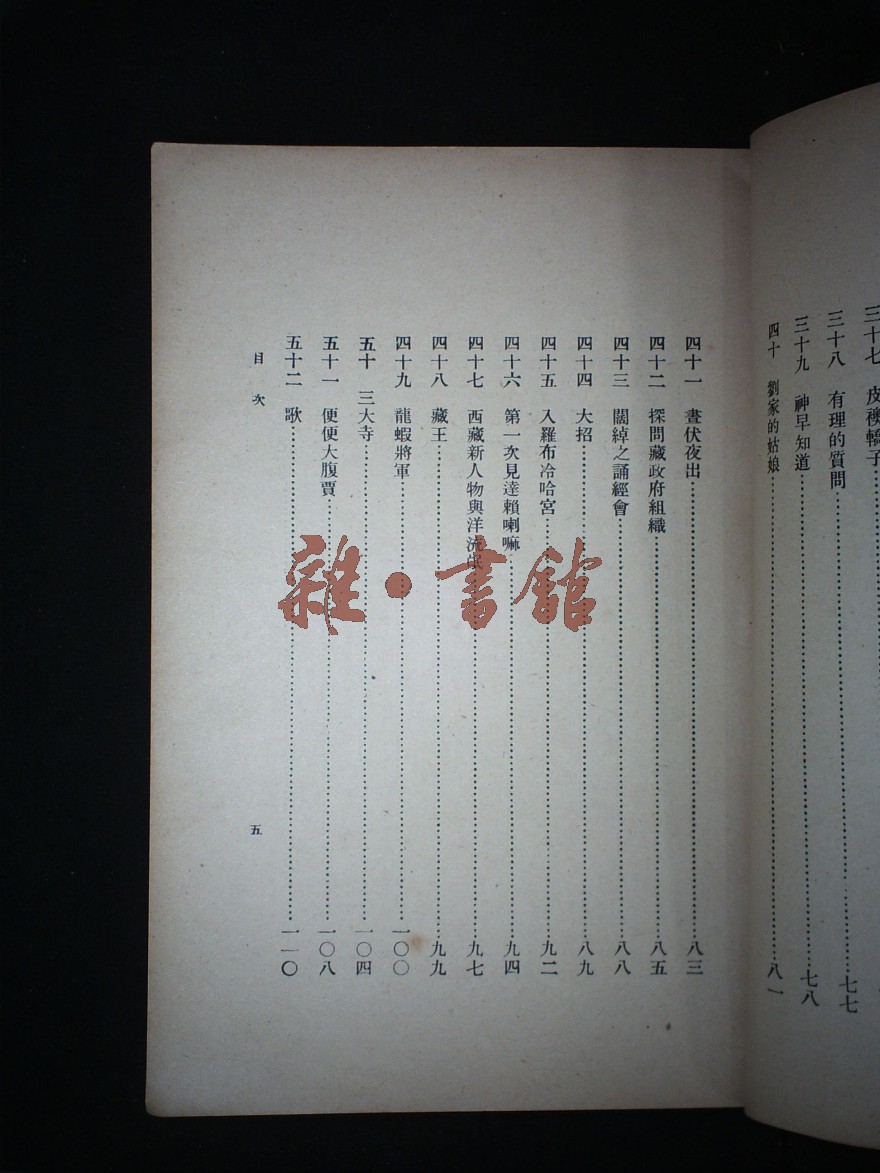 三十七 皮襖轎子
三十八 有理的質問 七七
三十九 神早知道 七八
四十 劉家的姑娘 八一
四十一 晝伏夜出 八三
四十二 探問藏政府組織 八五
四十三 闊綽之誦經會 八八
四十四 大招 八九
四十五 入羅布冷哈宮 九二
四十六 第一次見達賴喇嘛 九四
四十七 西藏新人物與洋流氓 九七
四十八 藏王 九九
四十九 龍蝦將軍 一〇〇
五十 三大寺 一〇四
五十一 便便大腹賈 一〇八
五十二 歌 一一〇
目次
五
雜·書館